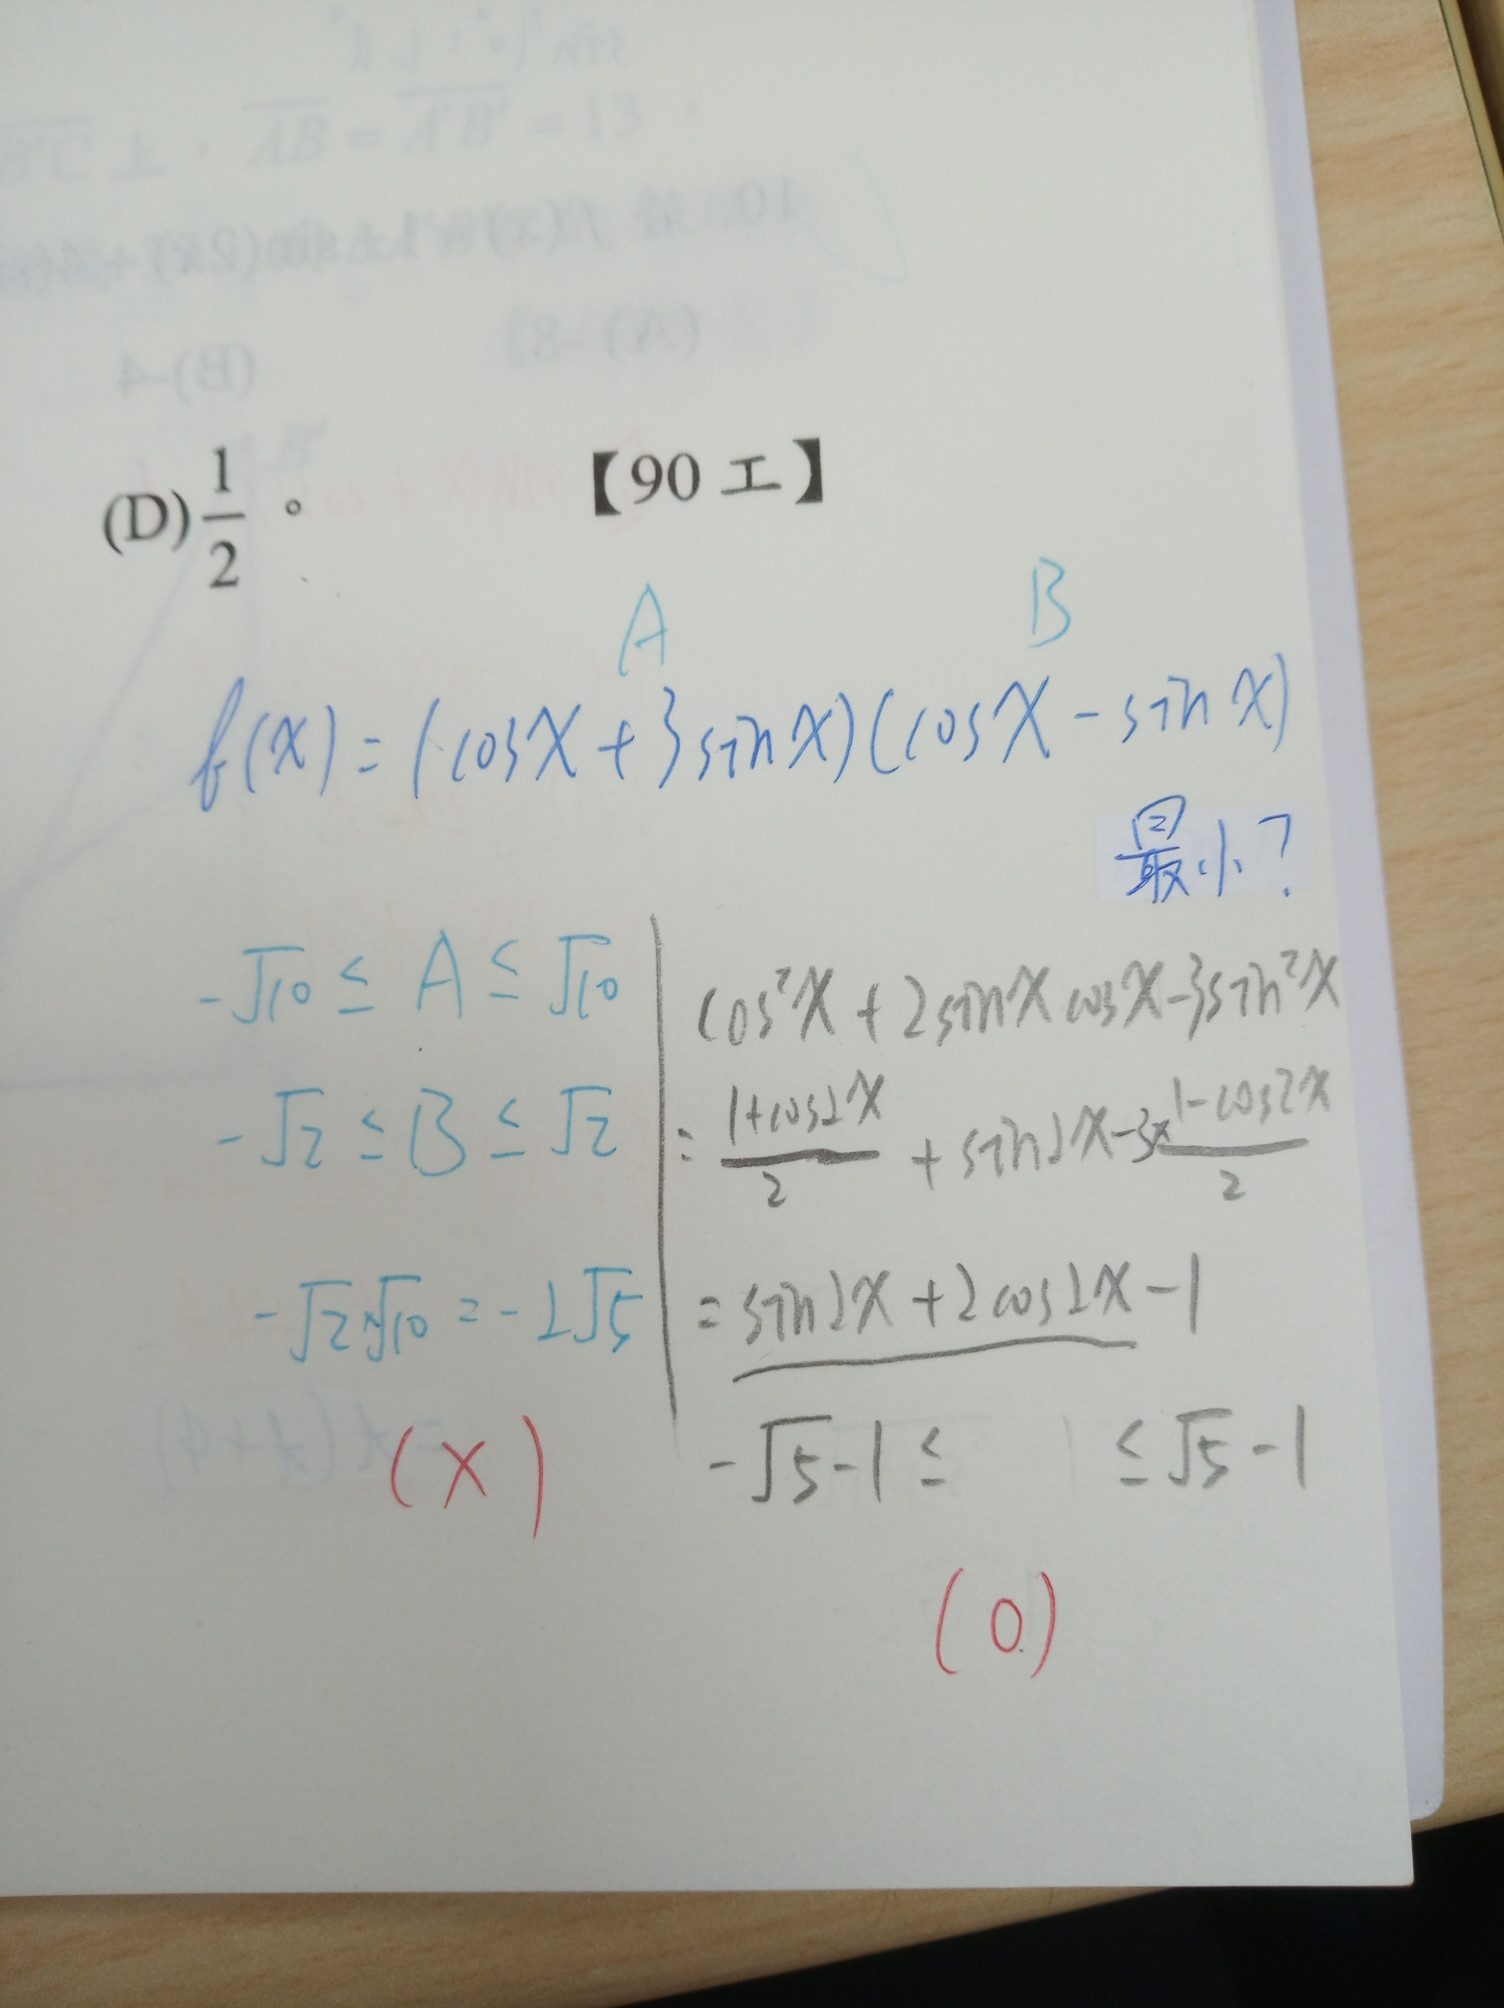 (D) 1/2 。 【90 工】
A B
f(x) = (cosx + 3sinx)(cosx - sinx)
最小?
-√10 ≤ A ≤ √10
-√2 ≤ B ≤ √2
-√2×√10 = -2√5
(X)
cos²x + 2sinx cosx - 3sin²x
= (1+cos2x)/2 + sin2x - 3×(1-cos2x)/2
= sin2x + 2cos2x - 1
-√5-1 ≤ ≤ √5-1
(O)